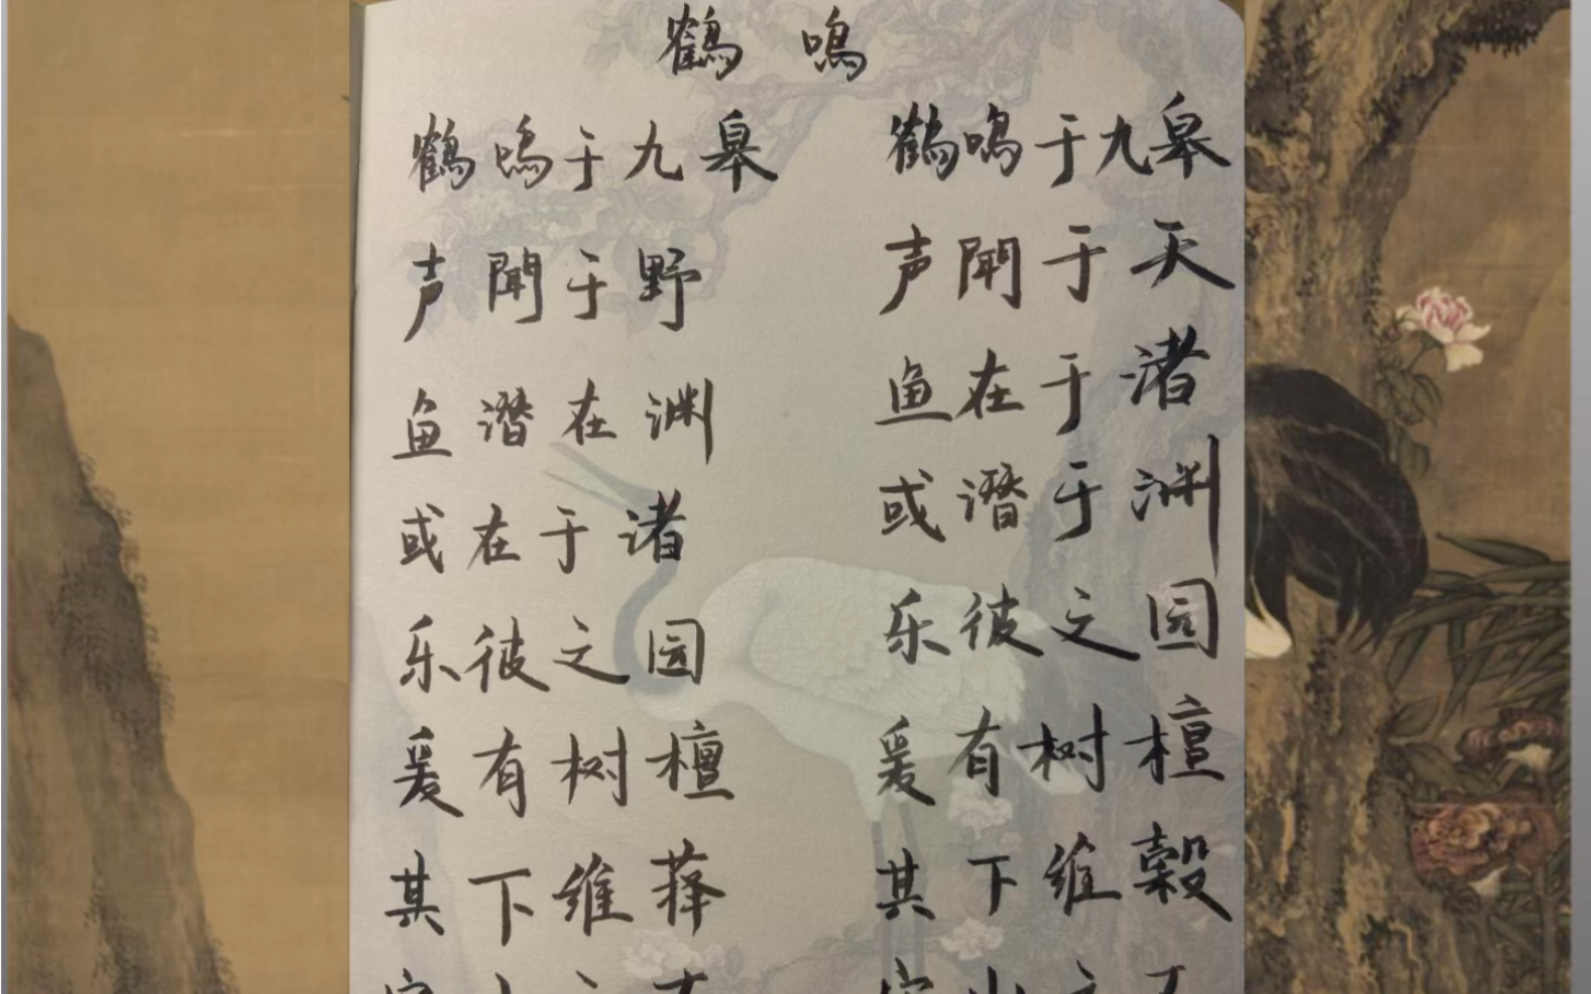 鶴 鳴
鶴鳴于九皋
声聞于野
鱼潜在渊
或在于渚
乐彼之园
爰有树檀
其下維萚
鶴鳴于九皋
声聞于天
鱼在于渚
或潜于渊
乐彼之园
爰有树檀
其下維榖